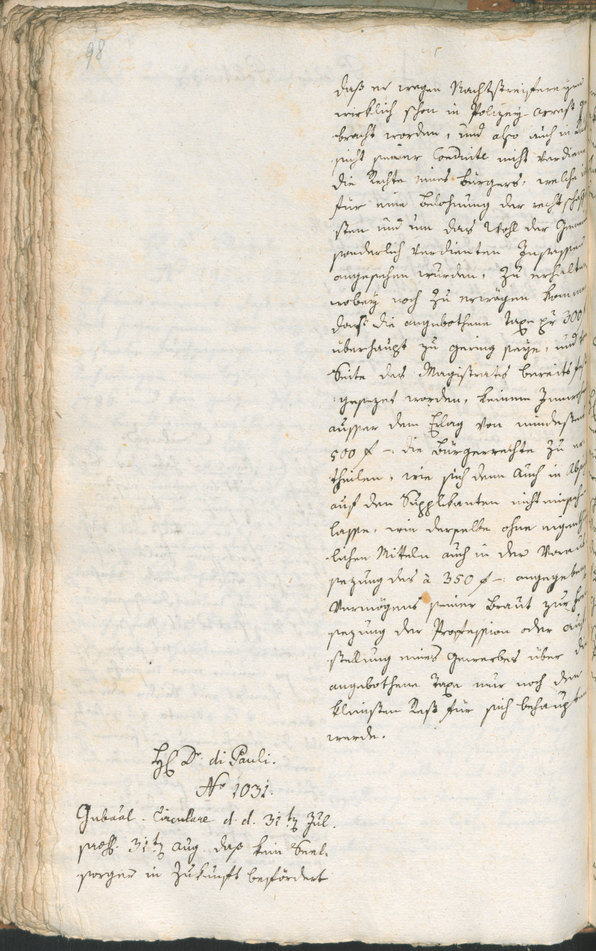 98
daß er wegen Nachtstreifereyen
wirklich schon in Polizey arrest ge
bracht worden, und also auch in
sicht seiner Conduite nicht verdiene
die Rechte eines Bürgers, welche
für eine Belohnung der rechtschaf
sten und um das Wohl der Gemei
sonderlich verdienten Insassen
angesehen wurden, zu erhalten
wobey noch zu erwägen komme
daß die angebothene Taxe pr 300
überhaupt zu gering seye, und
Seite des Magistrats bereits fest
gesezet worden, keinem
ausser dem Erlag von mindestens
500 f – die Bürgerrechte zu er
theilen, wie sich dann auch in Abse
auf den Supplikanten nicht einsehen
lasse, wie derselbe ohne eigent
lichen Mitteln auch in der Voraus
sezung des à 350 f – angegebenen
Vermögens seiner Braut zur
sezung der Profession oder auf
stellung eines Gewerbes über die
angebothene Taxe nur noch den
kleinsten Rest für sich behaupten
werde.
H. Dr. di Pauli.
No 1031.
Gubẽal-Circulare d. d. 31tz Jul.
präs. 31tz Aug. daß kein Seel-
sorger in Zukunft befördert